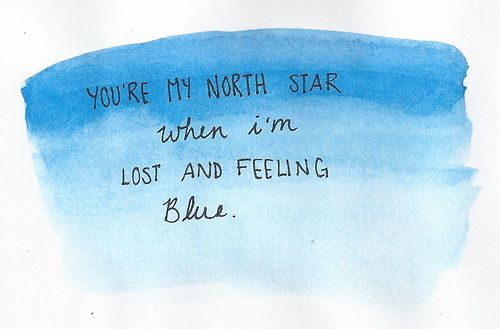 YOU'RE MY NORTH STAR
when i'm
LOST AND FEELING
Blue.